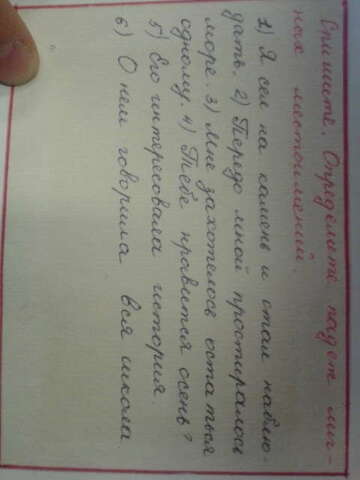 Спишите. Определите падеж лич-
ных местоимений.
1) Я сел на камень и стал наблю-
дать. 2) Передо мной простиралось
море. 3) Мне захотелось остаться
одному. 4) Тебе нравится осень?
5) Его интересовала история.
6) О нем говорила вся школа.